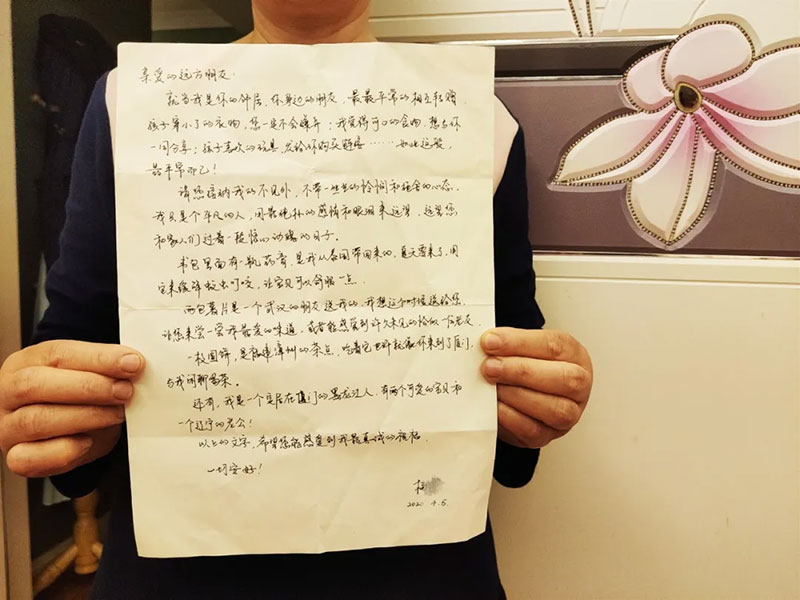 亲爱的远方朋友:
就当我是你的邻居,你身边的朋友,最最平常的相互转赠,
孩子穿小了的衣物,您一定不会嫌弃;我觉得可口的食物,想与你
一同分享;孩子喜欢的玩具,发给你购买链接……如此这般,
最平常而已!
请您接纳我的不见外,不带一丝丝的怜悯和施舍的心态。
我只是个平凡的人,用最纯朴的感情和眼泪来远望,远望您
和家人们过着一段惊心动魄的日子。
书包里面有一瓶药膏,是我从泰国带回来的,夏天要来了,用
它来缓解蚊虫叮咬,让宝贝可以舒服一点。
两包薯片是一个武汉的朋友送我的,我想这个时候送给您,
让您来尝一尝我最爱的味道,或者能感觉到许久未见的恰似一位老友
一枚圆饼,是福建漳州的茶点,吃着它也许就像你来到了厦门,
与我闲聊喝茶。
还有,我是一个定居在厦门的黑龙江人,有两个可爱的宝贝和
一个辽宁的老公!
以上的文字,希望您能感受到我最真诚的祝福。
一切安好!
2020.4.5.